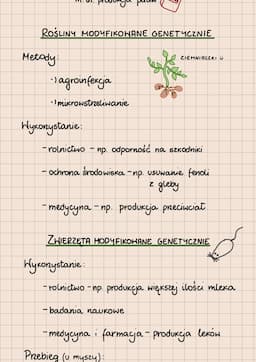 m. in. produkcja paliw
ROŚLINY MODYFIKOWANE GENETYCZNIE
Metody:
ZIEMNIACZKI ü
·) agroinfekcja
·) mikrowstrzeliwanie
Wykorzystanie:
- rolnictwo - np. odporność na szkodniki
- ochrona środowiska - np. usuwanie fenoli
z gleby
- medycyna - np. produkcja przeciwciał
ZWIERZĘTA MODYFIKOWANE GENETYCZNIE
Wykorzystanie:
- rolnictwo - np. produkcja większej ilości mleka
- badania naukowe
- medycyna i farmacja - produkcja leków
Przebieg (u myszy):